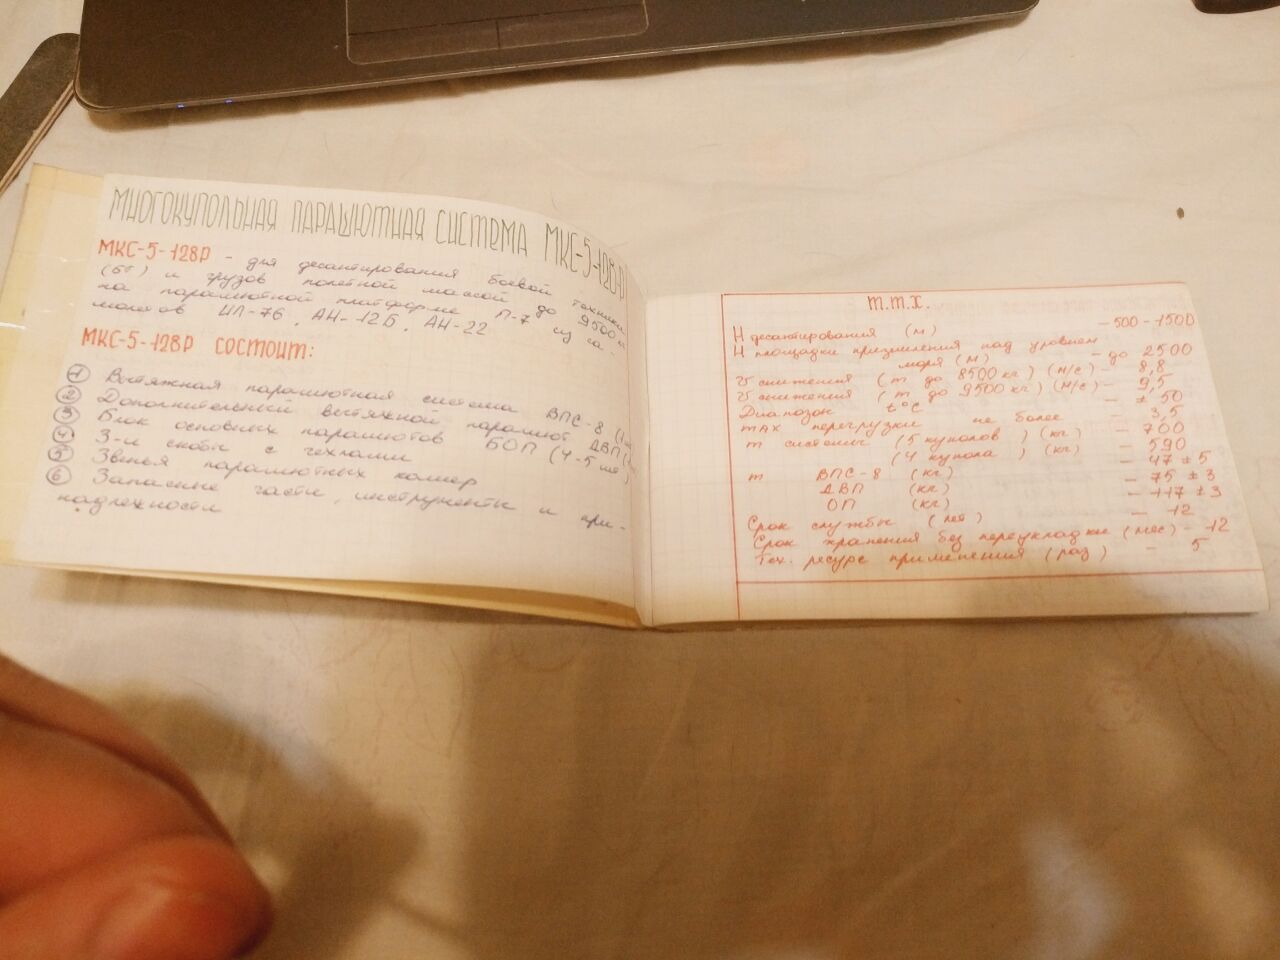 МНОГОКУПОЛЬНАЯ ПАРАШЮТНАЯ СИСТЕМА МКС-5-128Р
МКС-5-128Р - для десантирования боевой техники
(БТ) и грузов полетной массой до 9500 кг
на парашютной платформе П-7 из са-
молетов ИЛ-76, АН-12Б, АН-22
МКС-5-128Р СОСТОИТ:
1 Вытяжная парашютная система ВПС-8
2 Дополнительный вытяжной парашют ДВП
3 Блок основных парашютов БОП (4-5 шт)
4 3-и скобы с чехлами
5 Звенья парашютных камер
6 Запасные части, инструменты и при-
надлежности
Т.Т.Х.
H десантирования (м) - 500-1500
H площадки приземления над уровнем
моря (м) - до 2500
V снижения (m до 8500 кг) (м/с) - 8,8
V снижения (m до 9500 кг) (м/с) - 9,5
Диапозон t°C - ± 50
max перегрузки не более - 3,5
m системы (5 куполов) (кг) - 700
(4 купола) (кг) - 590
m ВПС-8 (кг) - 47 ± 5
ДВП (кг) - 75 ± 3
ОП (кг) - 117 ± 3
Срок службы (лет) - 12
Срок хранения без переукладки (мес) - 12
Тех. ресурс применения (раз) - 5